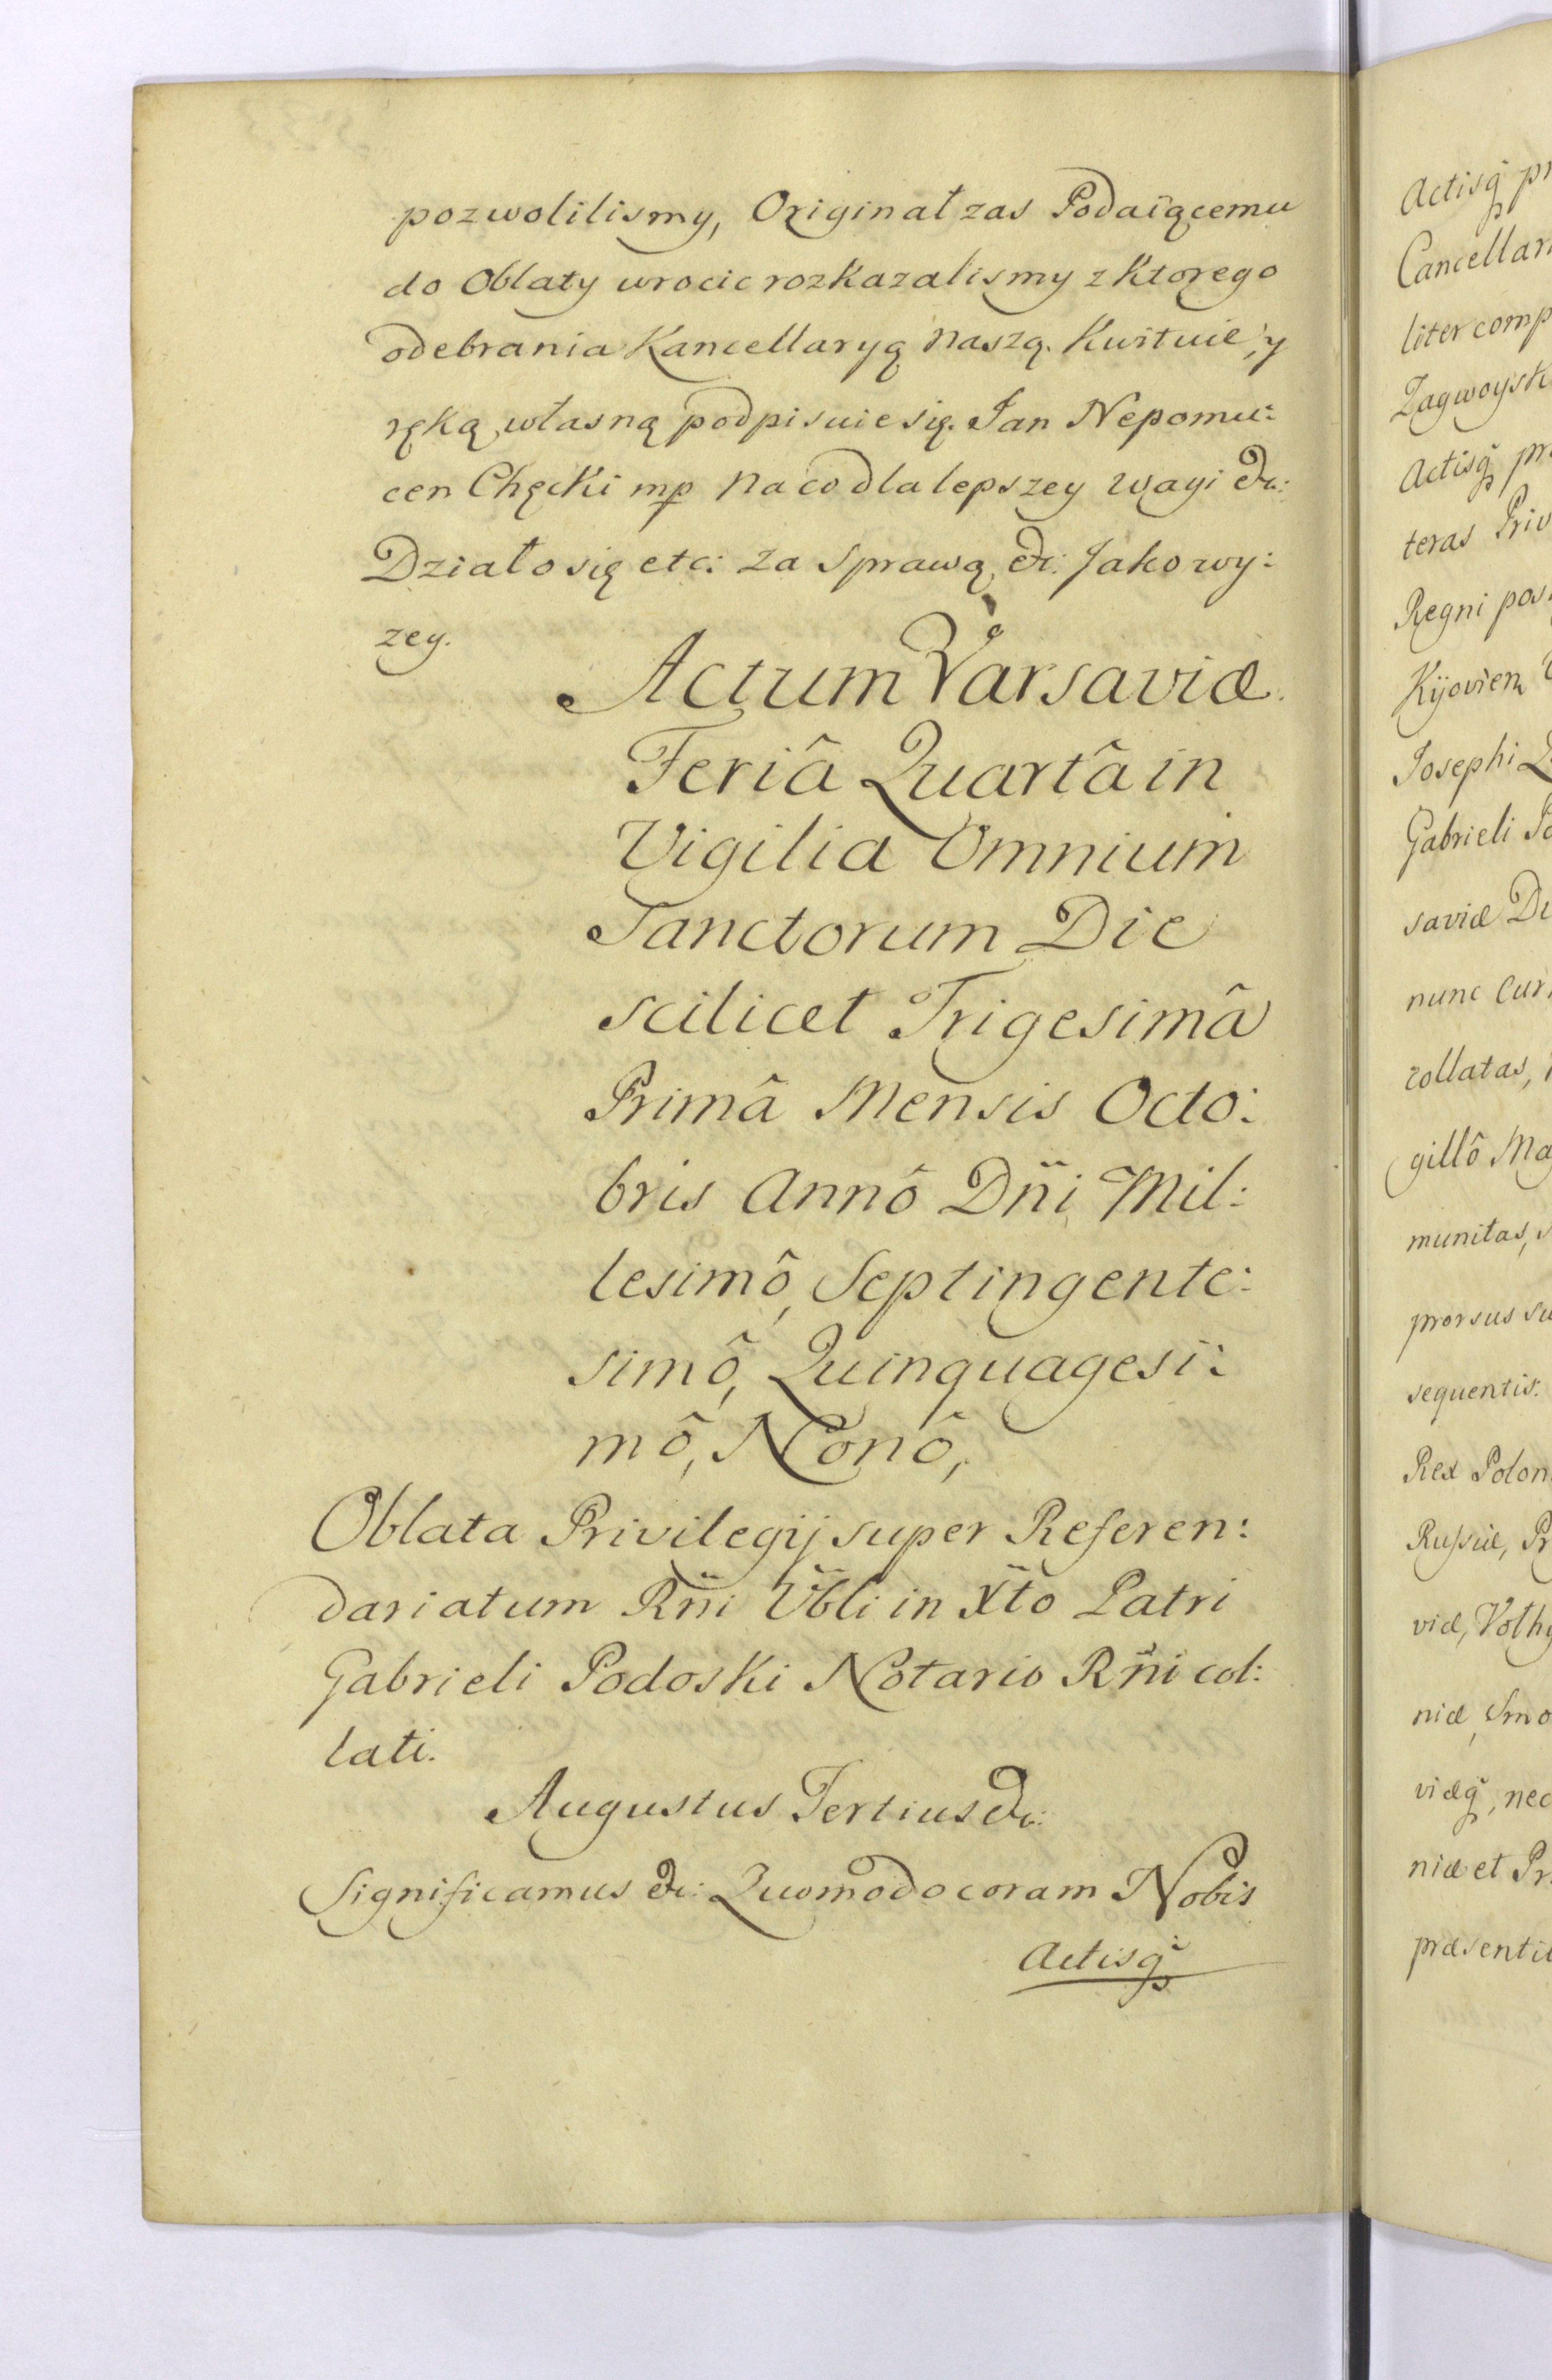 pozwolilismy, Originał zas Podaiącemu
do Oblaty wrocic rozkazalismy z ktorego
odebrania Kancellaryą naszą. Kwituie, y
ręką własną podpisuie się. Jan Nepomu:
cen Chęcki mp Na co dla lepszey wagi &c:
Działo się etc: za sprawą &c: Jako wy:
zey.
Actum Varsaviæ
Feriâ Quartâ in
Vigilia Omnium
Sanctorum Die
scilicet Trigesimâ
Primâ Mensis Octo:
bris Annô Dñi Mil:
lesimô, Septingente:
simô, Quinquagesi:
mô, Nonô,
Oblata Privilegij super Referen:
dariatum Rñi Vbli in Xto Patri
Gabrieli Podoski Notario Rñi col:
lati.
Augustus Tertius &c:
Significamus &c: Quomodo coram Nobis
Actisq
Actisq pr
Cancellar
liter comp
Zagwoysk
Actisq pr
teras Priv
Regni pos
Kijovien
Josephi
Gabrieli Po
saviæ De
nunc Cur
collatas,
gillô Ma
munitas, s
prorsus su
sequentis:
Rex Polon
Russiæ, Pr
viæ, Volhy
niæ, Smo
viæq, nec
niæ et Pr
præsenti